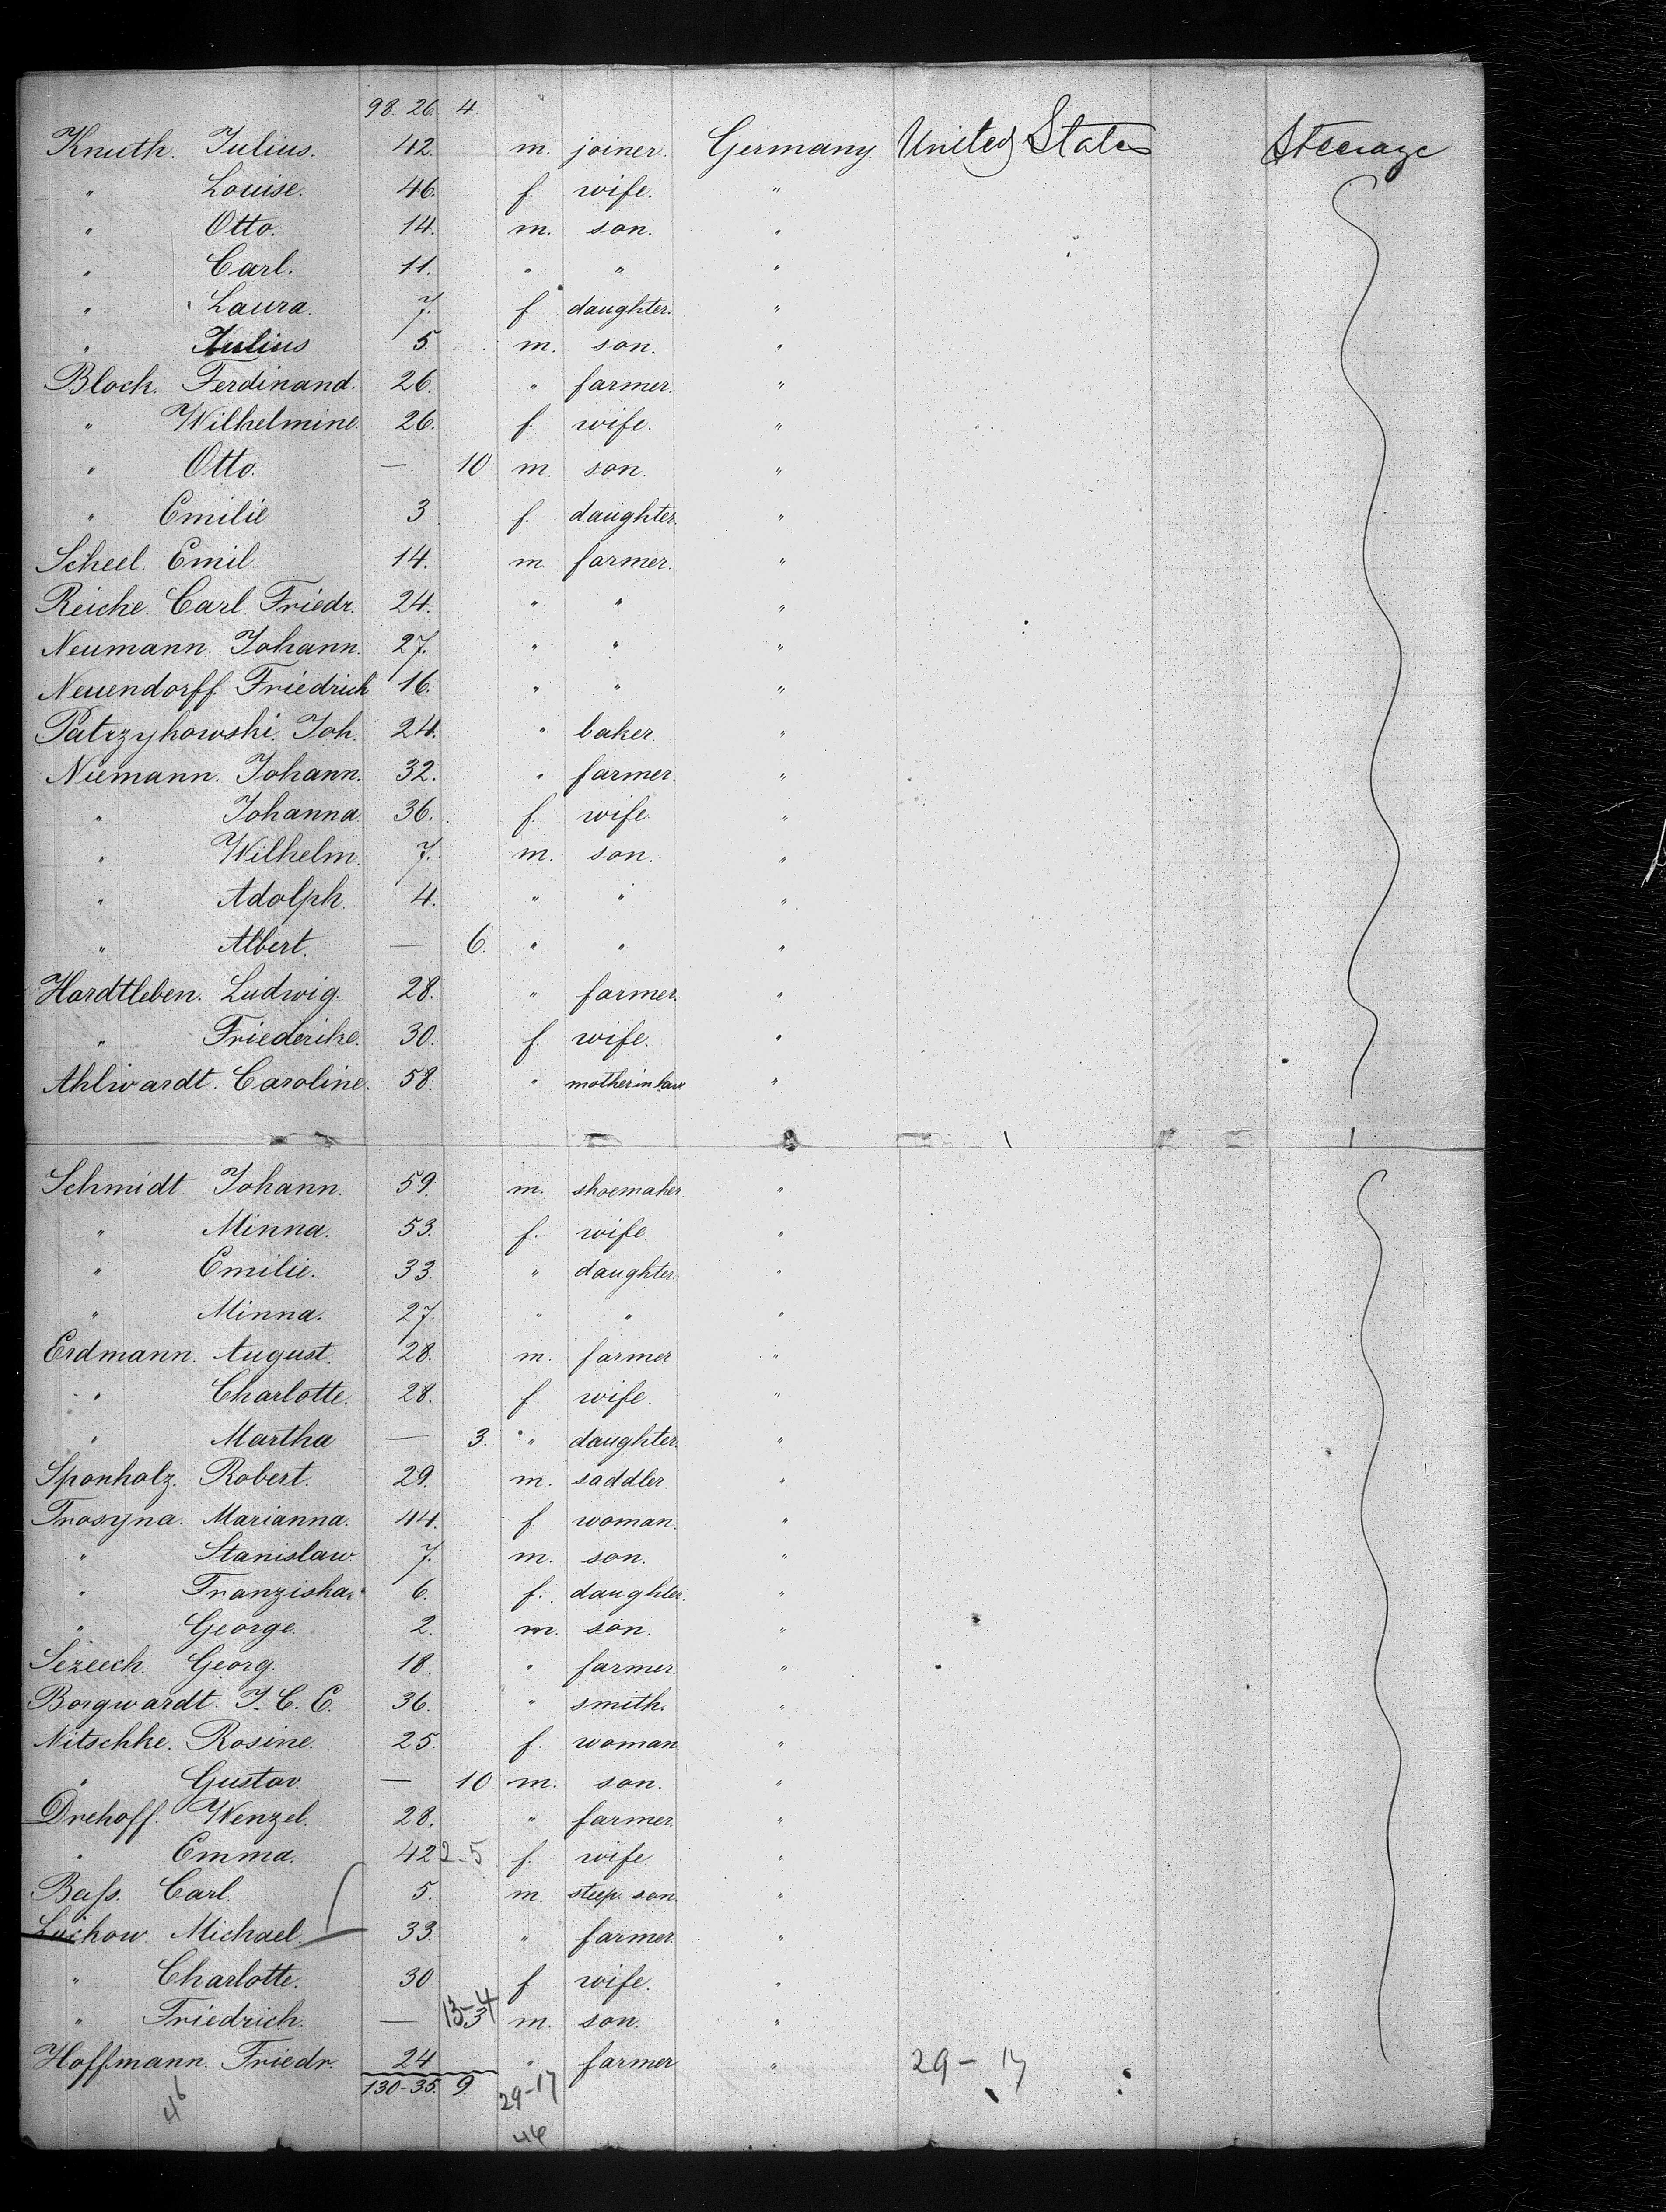 98. 26. 4.
Knuth. Julius. 42. m. joiner. Germany. United States Steerage
" Louise. 46. f. wife. "
" Otto. 14. m. son. "
" Carl. 11. " " "
" Laura. 7. f daughter. "
" Julius 5. m. son. "
Block. Ferdinand. 26. " farmer. "
" Wilhelmine. 26. f. wife. "
" Otto. — 10 m. son. "
" Emilie 3 f. daughter. "
Scheel. Emil. 14. m. farmer. "
Reiche. Carl Friedr. 24. " " "
Neumann. Johann. 27. " " "
Neuendorff. Friedrich 16. " " "
Patrzykowski. Joh. 24. " baker. "
Niemann. Johann. 32. " farmer. "
" Johanna. 36. f. wife. "
" Wilhelm. 7. m. son. "
" Adolph. 4. " " "
" Albert. — 6. " " "
Hardtleben. Ludwig. 28. " farmer. "
" Friederike. 30. f. wife. "
Ahlwardt. Caroline. 58. " mother in law "
Schmidt Johann. 59. m. shoemaker. "
" Minna. 53. f. wife. "
" Emilie. 33. " daughter. "
" Minna. 27. " " "
Erdmann. August. 28. m. farmer "
" Charlotte. 28. f wife. "
" Martha — 3. " daughter. "
Sponholz. Robert. 29. m. saddler. "
Trosyna. Marianna. 44. f. woman. "
" Stanislaw. 7. m. son. "
" Franziska. 6. f. daughter. "
" George. 2. m. son. "
Georg. 18. " farmer. "
Borgwardt. J. C. E. 36. " smith. "
Nitschke. Rosine. 25. f. woman. "
" Gustav. — 10 m. son. "
Drehoff. Wenzel. 28. " farmer. "
" Emma. 42 2-5 f. wife. "
Bass. Carl. 5. m. steep. son "
Lückow. Michael. 33. " farmer. "
" Charlotte. 30 f wife. "
" Friedrich. — m. son. "
Hoffmann. Friedr. 24 " farmer " 29 - 17
130-35. 9. 29-17
46 46